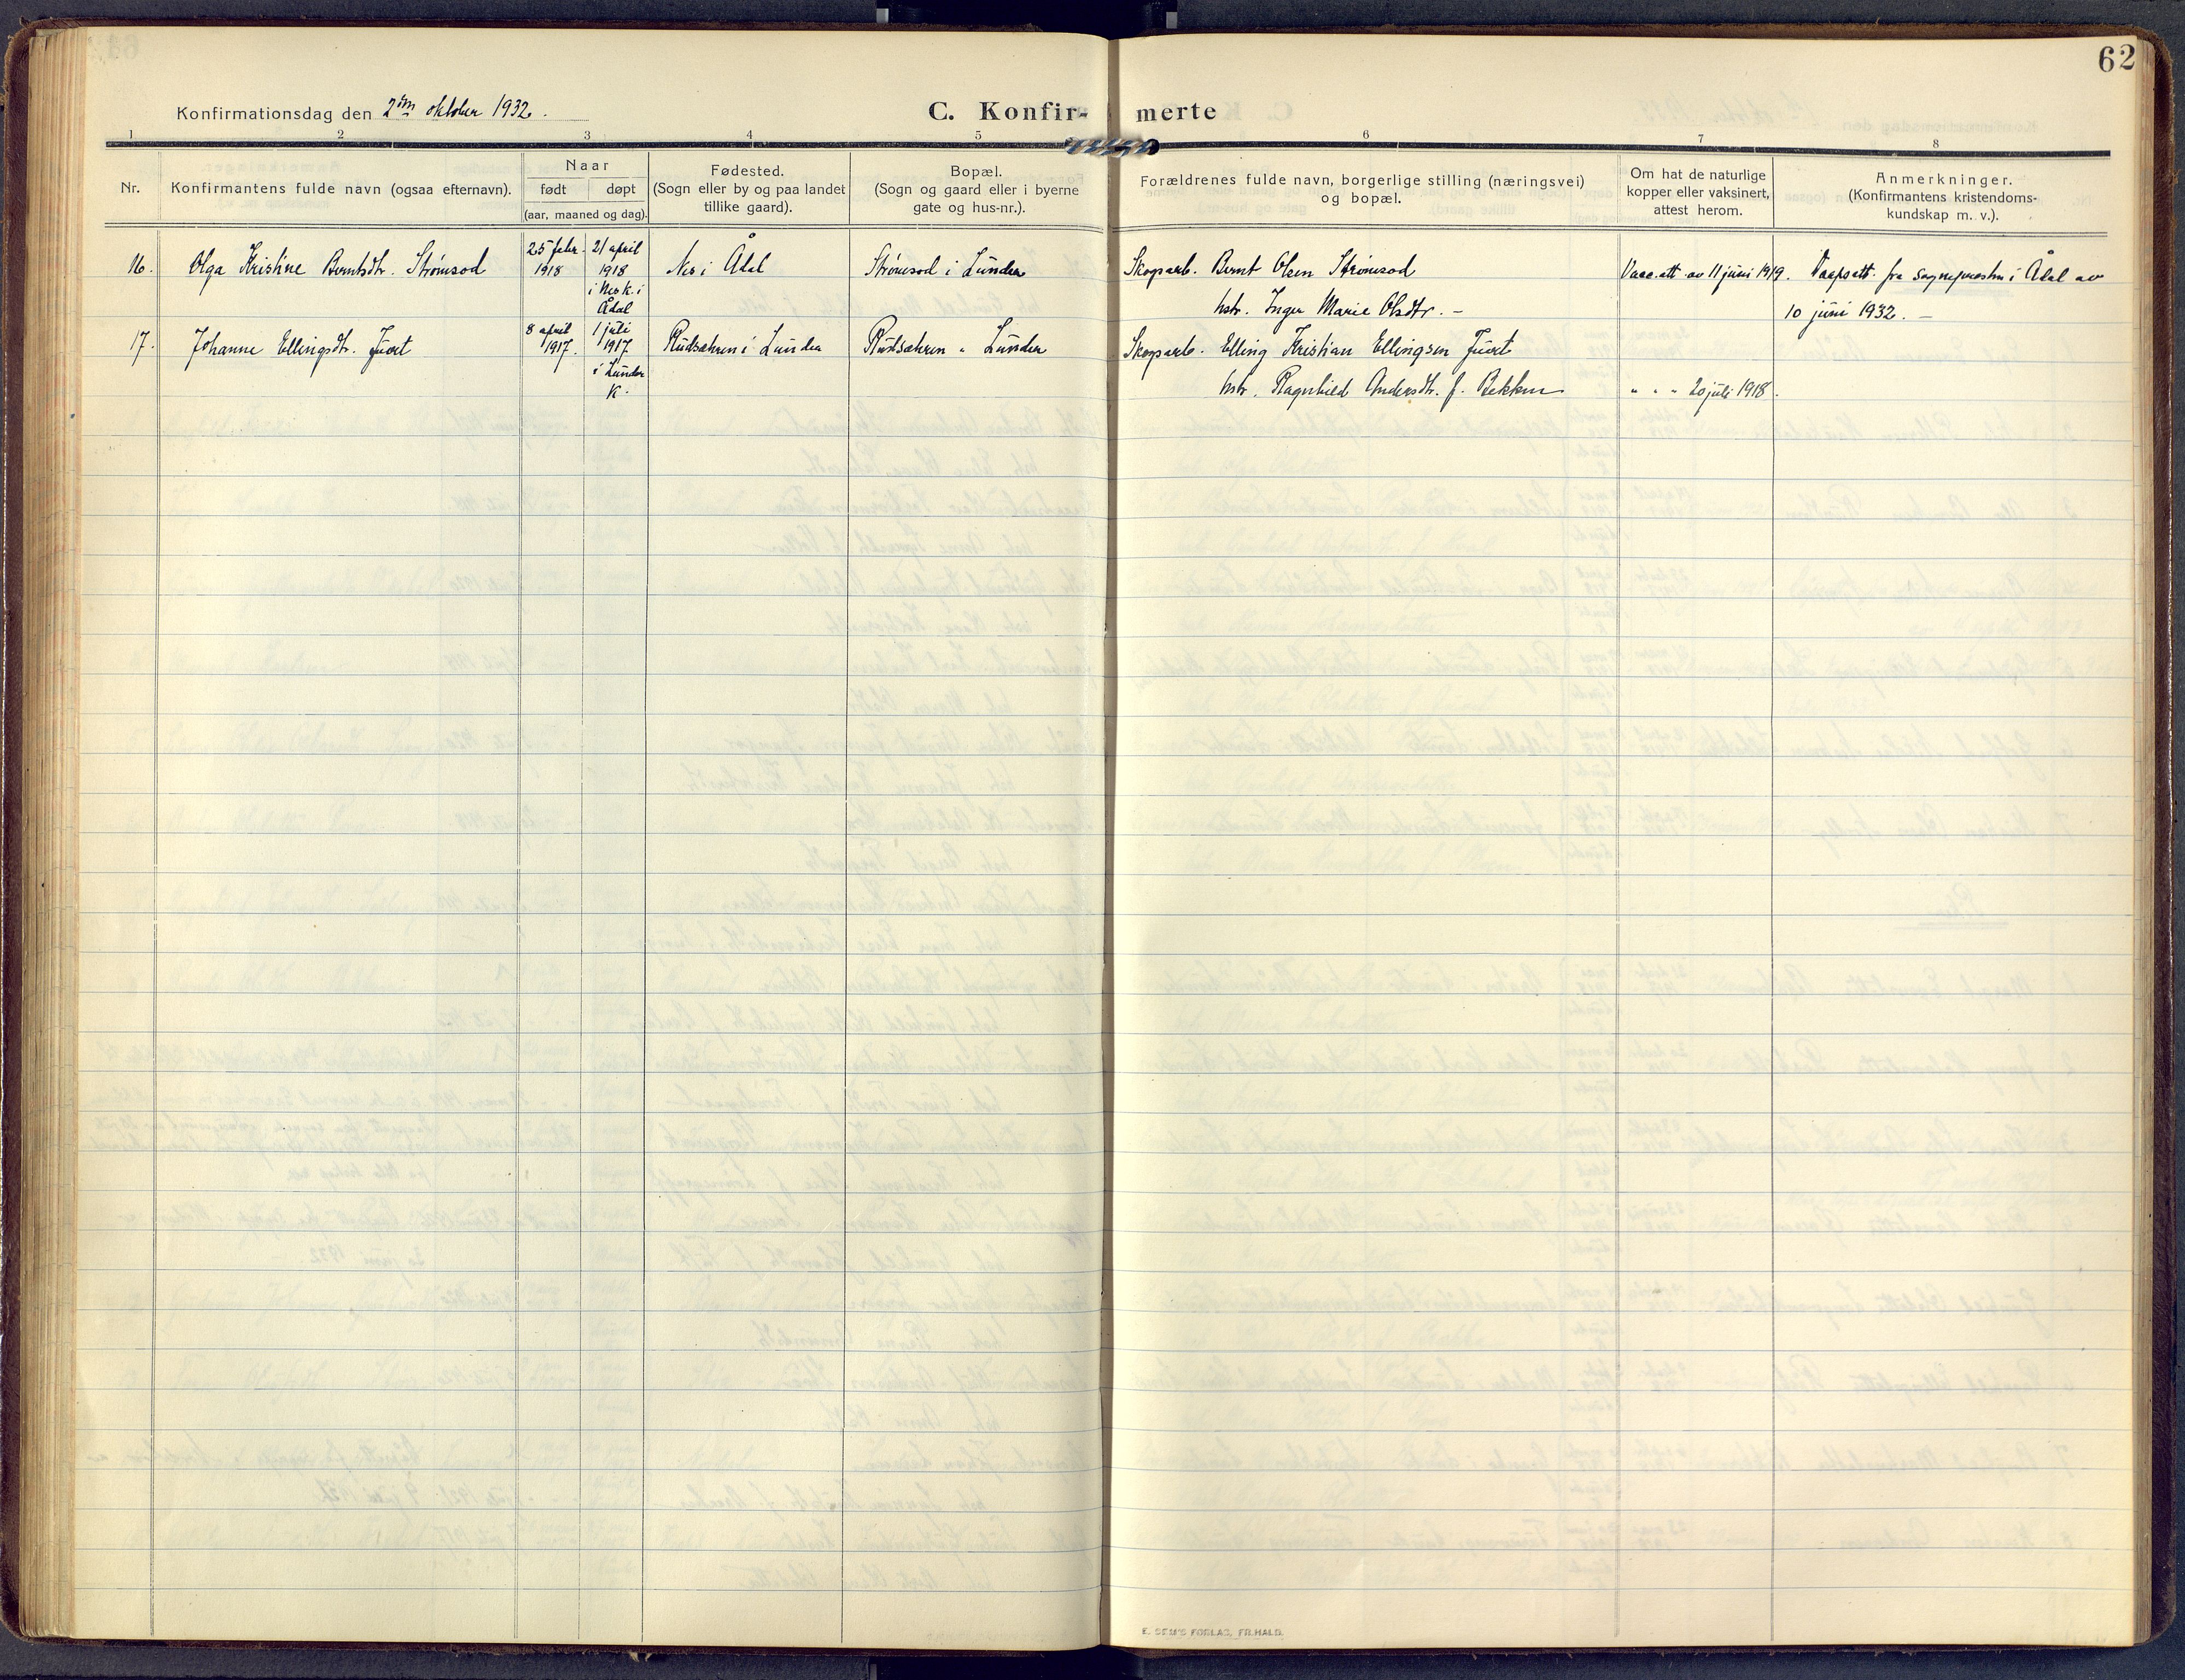 62
Konfirmationsdag den 2den oktober 1932.
C. Konfirmerte
1 2 3 4 5 6 7 8
Nr.
Konfirmantens fulde navn (ogsaa efternavn).
Naar
født døpt
(aar, maaned og dag).
Fødested.
(Sogn eller by og paa landet
tillike gaard).
Bopæl.
(Sogn og gaard eller i byerne
gate og hus-nr.).
Forældrenes fulde navn, borgerlige stilling (næringsvei)
og bopæl.
Om hat de naturlige
kopper eller vaksinert,
attest herom.
Anmerkninger.
(Konfirmantens kristendoms-
kundskap m. v.).
16. Olga Kristine Berntsdtr. Strømsod
25 febr.
1918
21 april
1918
i Nes k. i
Ådal
Nes i Ådal
Strømsod i Lunder
Skogsarb. Bernt Olsen Strømsod
hstr. Inger Marie Olsdtr. –
Vacc.att. av 11 juni 1919.
Daapsatt. fra sognepresten i Ådal av
10 juni 1932. –
17. Johanne Ellingsdtr. Juvet
8 april
1917.
1 juli
1917
i Lunder
K.
Rudsæteren i Lunder
Rudsæteren " Lunder
Skogsarb. Elling Kristian Ellingsen Juvet
hstr. Ragnhild Andersdtr. f. Bekken
" " " 20 juli 1918.
E. SEM'S FORLAG, FR.HALD.